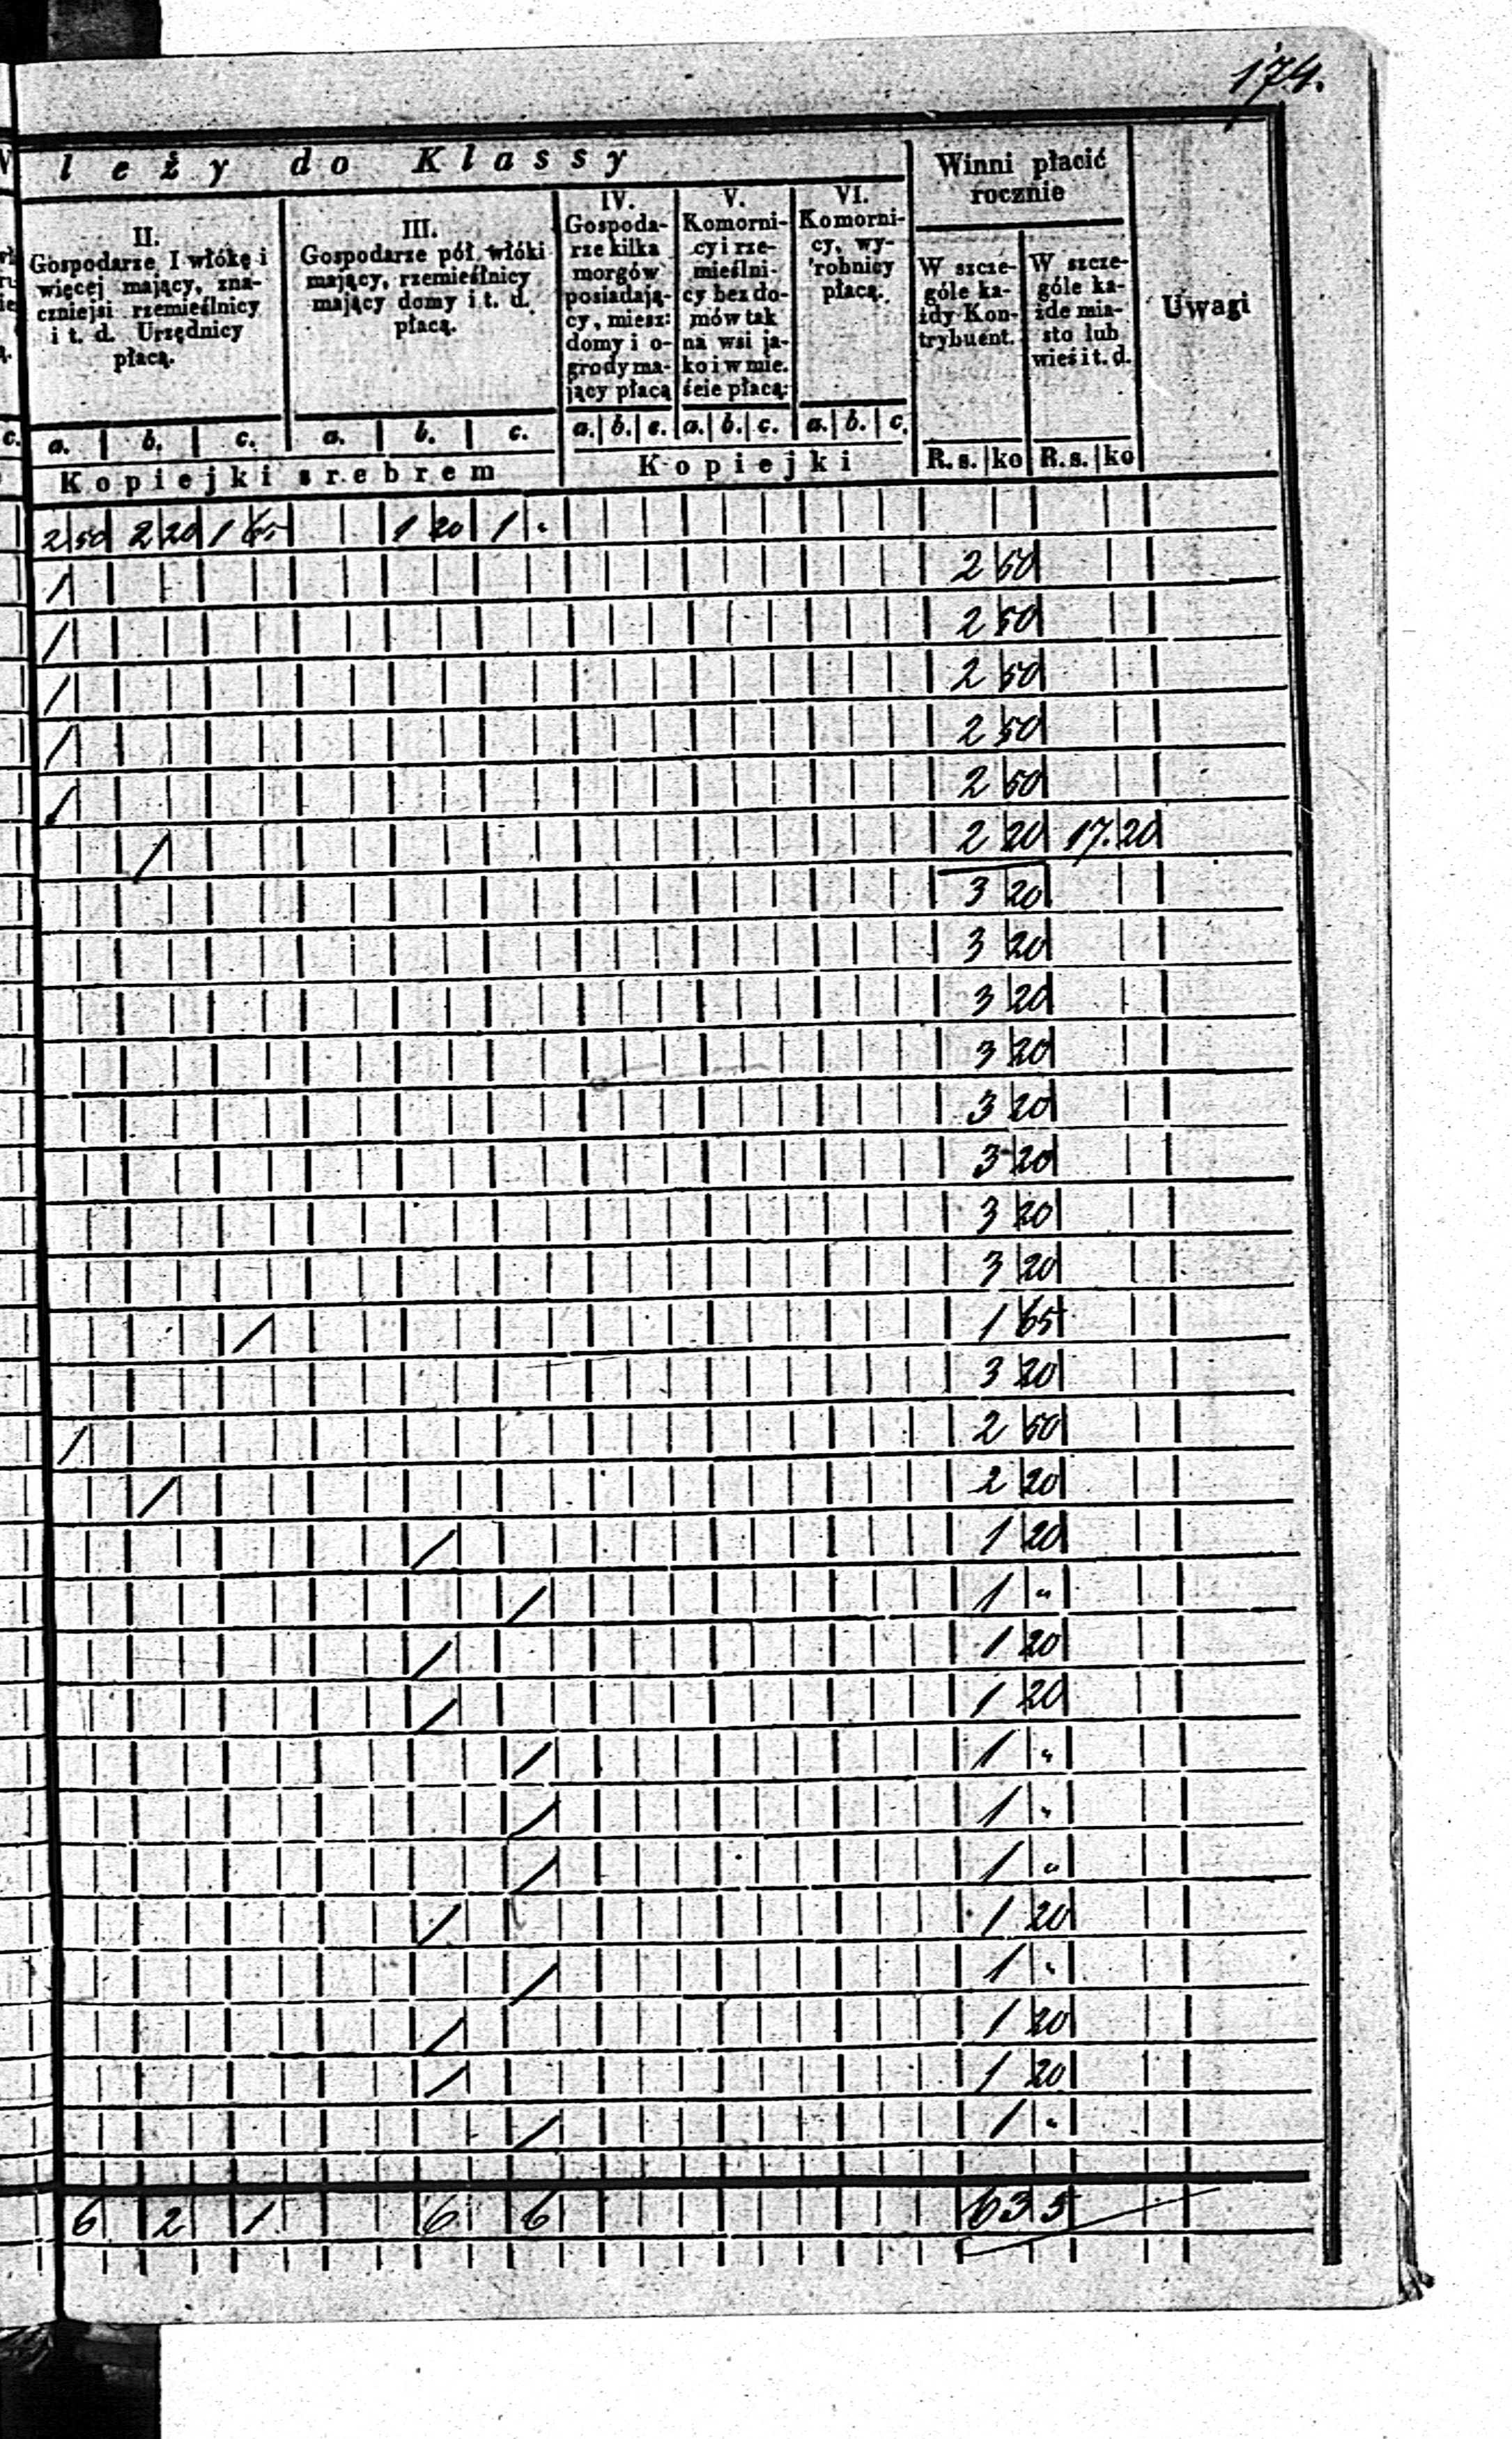 174.
leży do Klassy
Winni płacić
rocznie
Uwagi
II.
Gospodarze I włókę i
więcej mający, zna-
czniejsi rzemieślnicy
i t. d. Urzędnicy
płacą.
III.
Gospodarze pół włóki
mający, rzemieślnicy
mający domy i t. d.
płacą.
IV.
Gospoda-
rze kilka
morgów
posiadają-
cy, miesz:
domy i o-
grody ma-
jący płacą
V.
Komorni-
cy i rze-
mieślni-
cy bez do-
mów tak
na wsi ja-
ko i w mie.
ście płacą:
VI.
Komorni-
cy, wy-
robnicy
płacą.
W szcze-
góle ka-
żdy Kon-
trybuent.
W szcze-
góle ka-
żde mia-
sto lub
wieś i t. d.
c. a. b. c. a. b. c. a. b. c. a. b. c. a. b. c.
Kopiejki srebrem Kopiejki R.s. ko R.s. ko
2 50 2 20 1 65 1 20 1 "
/ 2 50
/ 2 50
/ 2 50
/ 2 50
/ 2 50
/ 2 20 17. 20
3 20
3 20
3 20
3 20
3 20
3 20
3 20
3 20
/ 1 65
3 20
/ 2 50
/ 2 20
/ 1 20
/ 1 "
/ 1 20
/ 1 20
/ 1 "
/ 1 "
/ 1 "
/ 1 20
/ 1 "
/ 1 20
/ 1 20
/ 1 "
6 2 1 6 6 63 5